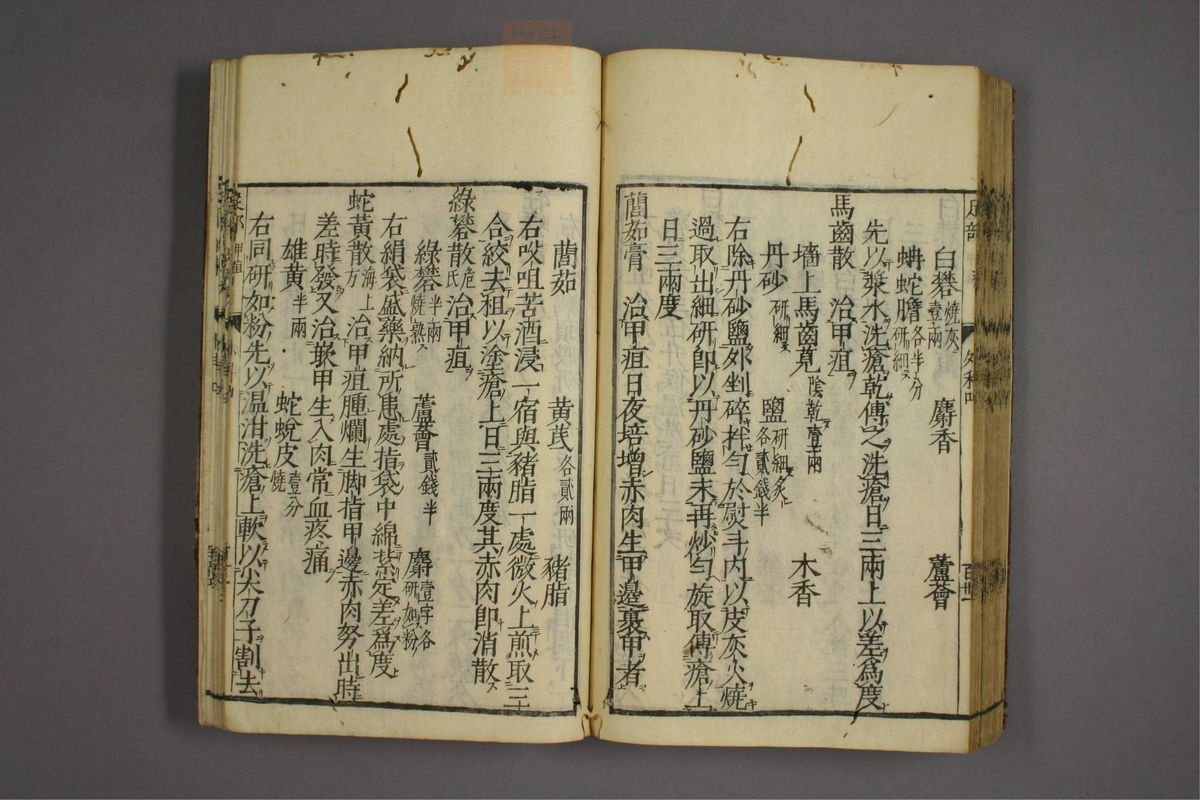 足部
外科四
百卅一
白礬燒灰壹兩 麝香 蘆薈
蚺蛇膽各半分研細
先以漿水洗瘡乾傅之洗瘡日三兩上以差爲度
馬齒散 治甲疽
墻上馬齒莧陰乾壹兩 木香
丹砂研細 鹽研細炙各貳錢半
右除丹砂鹽外剉碎拌勻於熨斗內以皮灰火燒
過取出細研卽以丹砂鹽末再炒勻旋取傅瘡上
日三兩度
䕡茹膏 治甲疽日夜培增赤肉生甲邊裹甲者
䕡茹 黃芪各貳兩 豬脂
右㕮咀苦酒浸一宿與豬脂一處微火上煎取三
合絞去粗以塗瘡上日三兩度其赤肉卽消散
綠礬散危氏 治甲疽
綠礬半兩燒熟 蘆薈貳錢半 麝壹字各研如粉
右絹袋盛藥納所患處指袋中綿紮定差爲度
蛇黃散海上方 治甲疽腫爛生脚指甲邊赤肉努出時
差時發又治嵌甲生入肉常血疼痛
雄黃半兩 蛇蛻皮壹分燒
右同研如粉先以温泔洗瘡上軟以尖刀子割去